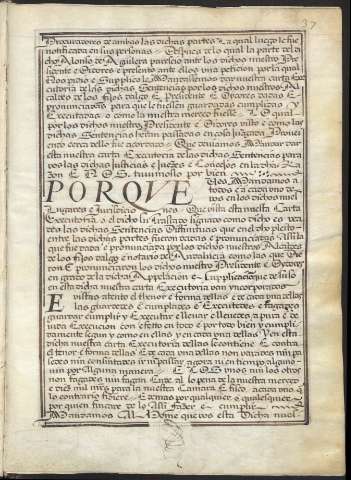 37
Procuradores de ambas las dichas partes E a qual luego le fue
notificada en sus personas Despues de lo qual la parte del di
cho Alonso de Aguilera parescio ante los dichos nuestro Pre
sidente E Oidores e presento ante ellos vna peticion por la qual
Nos pidio e Supplico le Mandassemos dar nuestra carta Exe
cutoria de las dichas Sentencias por los dichos nuestros Al
caldes de los fijos dalgo E Presidente E Oidores dadas E
pronunciadas para que le fuessen guardadas cumplidas y
Executadas o como la nuestra merced fuesse Lo qual
por los dichos nuestro Presidente E Oidores visto e como las
dichas Sentencias estan passadas en cosa juzgada Proue
yendo cerca dello fue acordado Que deuiamos Mandar dar
esta nuestra carta Executoria de las dichas Sentencias para vo
los las dichas justicias E juezes E Concejos en la dicha Ra
zon E NOS tuuimoslo por bien
PORQVE Vos Mandamos a
todos E a cada vno de
vos en los dichos nuestros
Lugares e Iurisdicio nes Que vista esta nuestra Carta
Executoria o el dicho su traslado signado como dicho es vea
des las dichas Sentencias Diffinitiuas que en el dicho pleito
entre las dichas partes fueron dadas e pronunciadas Assi la
que fue dada e pronunciada por los dichos nuestros Alcaldes
de los fijos dalgo e notario del Andaluzia como las que Die
ron E pronunciaron los dichos nuestro Presidente E Oidores
en grado de la dicha Appelacion e Supplicacion que de suso
en esta dicha nuestra carta Executoria von yncorporadas
E visto y atento el thenor e forma dellas E de cada vna dellas
las guardedes E cumplades E Executedes e fagades
guardar cumplir y Executar e lleuar e lleuedes a pura E de
uida Execucion con efeto en todo e por todo bien y cumpli
damente segun y como en ellas y en cada vna dellas Y en esta
dicha nuestra carta Executoria dellas se contiene E contra
el tenor e forma dellas E de cada vna dellas non vayades nin pa
sedes nin consintades ir nin passar agora ni en tiempo alguno
nin por Alguna manera E LOS vnos nin los otros
non fagades nin fagan Ende al so pena de la nuestra merced
e diez mil mrs para la nuestra Camara E fisco a cada vno q
lo contrario fiziere E demas por qualquier o qualesquier
por quien fincare de lo Assi fazer e cumplir
Mandamos Al Home que vos esta Dicha nuest